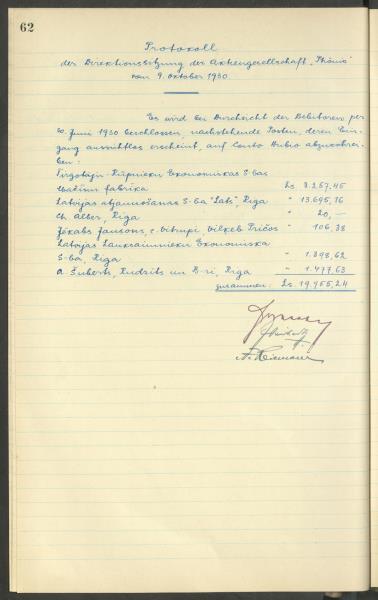 62
Protokoll
der Direktionssitzung der Aktiengesellschaft „Phönix"
vom 9. Oktober 1930
Es wird bei Durchsicht der Debitoren per
30. Juni 1930 beschlossen, nachstehende Posten, deren Ein-
gang aussichtlos erscheint, auf Conto Dubio abzuschrei-
ben:
Tirgotāju-Rūpnieku Ekonomiskas S-bas
fabrika Ls. 3.257,45
Latvijas atjaunošanas S-ba "Lats", Riga " 13.695,16
Ch. Alber, Riga " 20,—
Jēkabs Jansons, " 106,38
Latvijas Lauksaimnieku Ekonomiska
S-ba, Riga " 1.398,62
A. Suberts, Rudzits un B-ri, Riga " 1.477,63
zusammen: Ls. 19.955,24